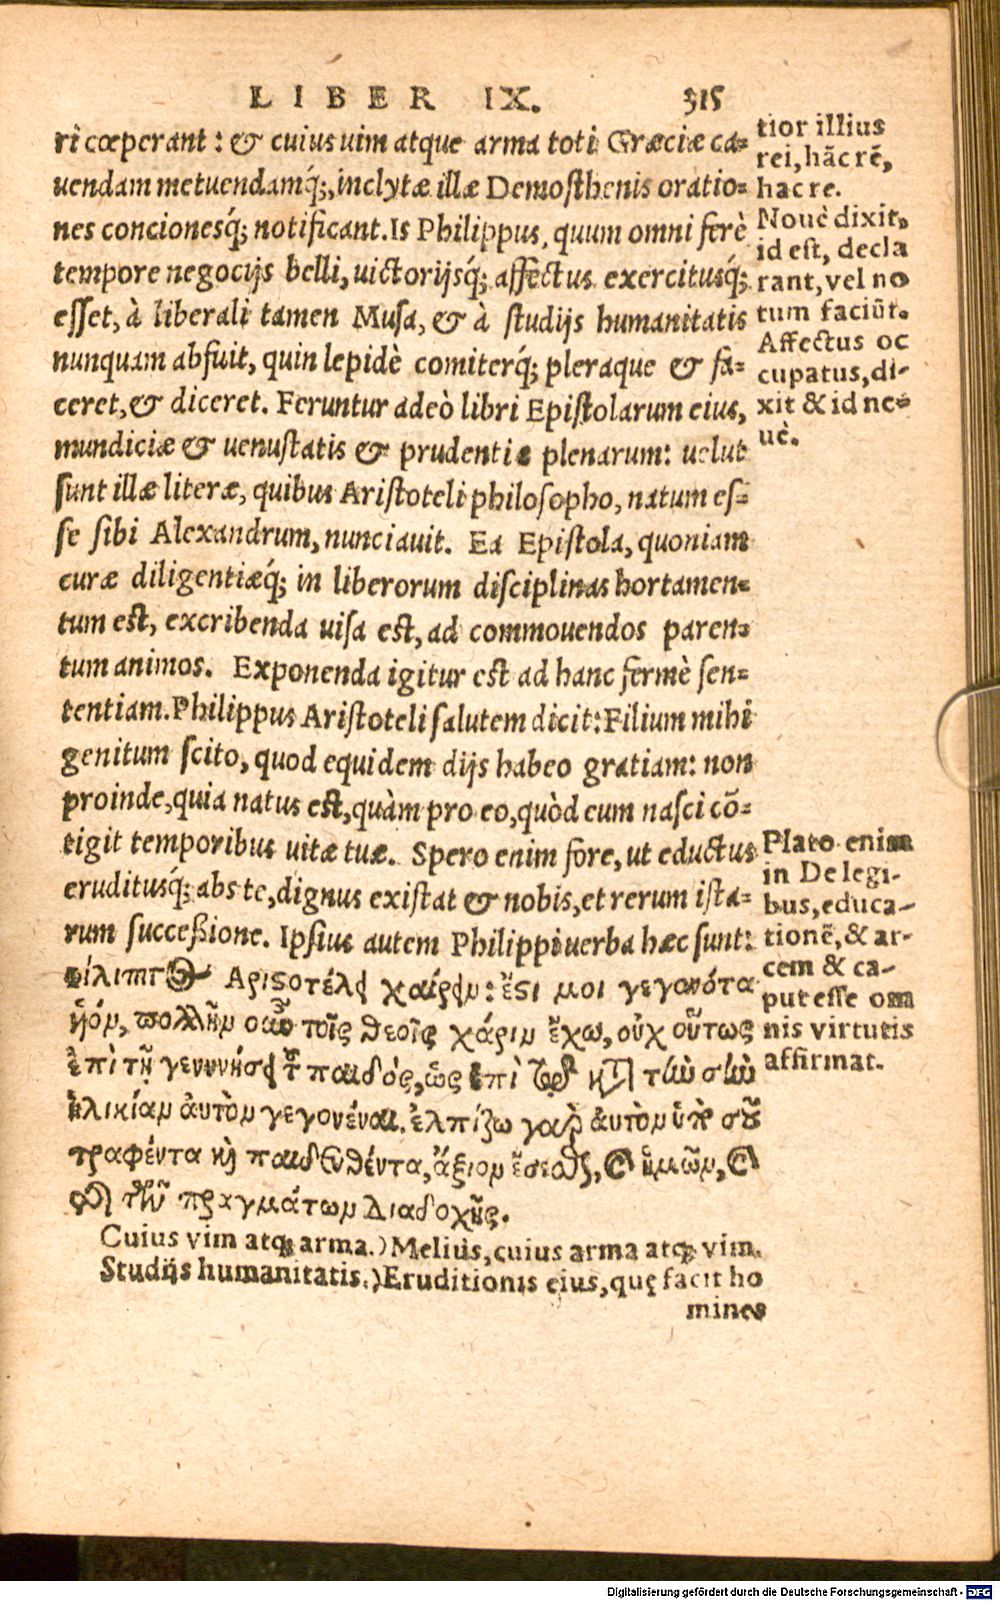 LIBER IX. 315
ri cœperant : & cuius uim atque arma toti Græciæ ca=
uendam metuendamq́;, inclytæ illæ Demosthenis oratio=
nes concionesq́; notificant. Is Philippus, quum omni ferè
tempore negocijs belli, uictorijsq́; affectus exercitusq́;
esset, à liberali tamen Musa, & à studijs humanitatis
nunquam abfuit, quin lepidè comiterq́; pleraque & fa=
ceret, & diceret. Feruntur adeò libri Epistolarum eius,
mundiciæ & uenustatis & prudentiæ plenarum: uelut
sunt illæ literæ, quibus Aristoteli philosopho, natum es=
se sibi Alexandrum, nunciauit. Ea Epistola, quoniam
curæ diligentiæq́; in liberorum disciplinas hortamen=
tum est, excribenda uisa est, ad commouendos paren=
tum animos. Exponenda igitur est ad hanc fermè sen=
tentiam. Philippus Aristoteli salutem dicit: Filium mihi
genitum scito, quod equidem dijs habeo gratiam: non
proinde, quia natus est, quàm pro eo, quòd eum nasci cō=
tigit temporibus uitæ tuæ. Spero enim fore, ut eductus
eruditusq́; abs te, dignus existat & nobis, et rerum ista=
rum successione. Ipsius autem Philippi uerba hæc sunt:
φίλιππος Αριστοτέλει χαίρειν: ἔστι μοι γεγονότα
ἡόν, πολλὴν οὖν τοῖς θεοῖς χάριν ἔχω, οὐχ οὕτως
ἐπὶ τῇ γεννήσει τοῦ παιδός, ὡς ἐπὶ τῷ κατὰ τὴν σὴν
ἡλικίαν ἀυτὸν γεγονέναι. ἐλπίζω γαρ ἀυτὸν ὑπὸ σοῦ
τραφέντα καὶ παιδευθέντα, ἄξιον ἔσεσθαι, καὶ ἡμῶν, καὶ
τῆς τῶν πραγμάτων Διαδοχῆς.
Cuius vim atq; arma.) Meliùs, cuius arma atq; vim.
Studijs humanitatis.) Eruditionis eius, quę facit ho
mines
tior illius
rei, hāc rē,
hac re.
Nouè dixit,
id est, decla
rant, vel no
tum faciūt.
Affectus oc
cupatus, di-
xit & id no=
uè.
Plato enim
in De legi-
bus, educa-
tionē, & ar-
cem & ca-
put esse om
nis virtutis
affirmat.
Digitalisierung gefördert durch die Deutsche Forschungsgemeinschaft - DFG